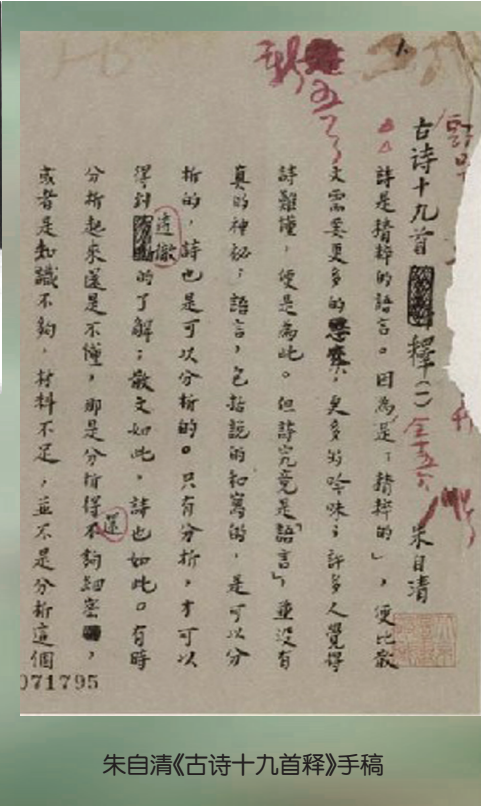 古诗十九首釋(一) 朱自清
詩是精粹的語言。因為是「精粹的」,便比散
文需要更多的思索,更多的吟味;許多人覺得
詩難懂,便是為此。但詩究竟是「語言」,並沒有
真的神秘;語言,包括說的和寫的,是可以分
析的,詩也是可以分析的。只有分析,才可以
得到透徹的了解;散文如此,詩也如此。有時
分析起來還是不懂,那是分析得還不夠細密,
或者是知識不夠,材料不足,並不是分析這個
071795
朱自清《古诗十九首释》手稿